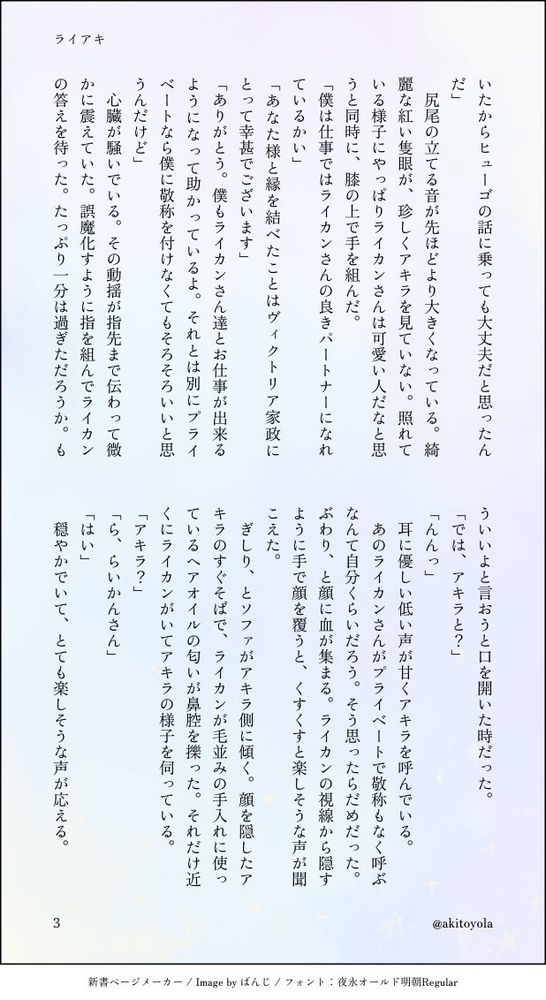 ライアキ
いたからヒューゴの話に乗っても大丈夫だと思ったん
だ」
　尻尾の立てる音が先ほどより大きくなっている。綺
麗な紅い隻眼が、珍しくアキラを見ていない。照れて
いる様子にやっぱりライカンさんは可愛い人だなと思
うと同時に、膝の上で手を組んだ。
「僕は仕事ではライカンさんの良きパートナーになれ
ているかい」
「あなた様と縁を結べたことはヴィクトリア家政に
とって幸甚でございます」
「ありがとう。僕もライカンさん達とお仕事が出来る
ようになって助かっているよ。それとは別にプライ
ベートなら僕に敬称を付けなくてもそろそろいいと思
うんだけど」
　心臓が騒いでいる。その動揺が指先まで伝わって微
かに震えていた。誤魔化すように指を組んでライカン
の答えを待った。たっぷり一分は過ぎただろうか。も
ういいよと言おうと口を開いた時だった。
「では、アキラと？」
「んんっ」
　耳に優しい低い声が甘くアキラを呼んでいる。
　あのライカンさんがプライベートで敬称もなく呼ぶ
なんて自分くらいだろう。そう思ったらだめだった。
ぶわり、と顔に血が集まる。ライカンの視線から隠す
ように手で顔を覆うと、くすくすと楽しそうな声が聞
こえた。
　ぎしり、とソファがアキラ側に傾く。顔を隠したア
キラのすぐそばで、ライカンが毛並みの手入れに使っ
ているヘアオイルの匂いが鼻腔を擽った。それだけ近
くにライカンがいてアキラの様子を伺っている。
「アキラ？」
「ら、らいかんさん」
「はい」
　穏やかでいて、とても楽しそうな声が応える。
3
@akitoyola
新書ページメーカー / Image by ぱんじ / フォント：夜永オールド明朝Regular